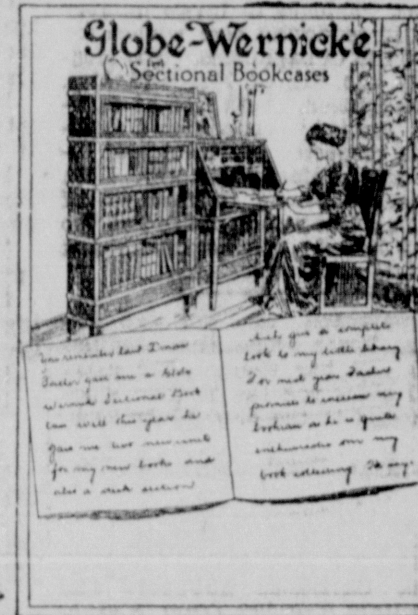 Globe-Wernicke
Sectional Bookcases
You remember last Xmas
Father gave me a Globe
Wernicke Sectional Book
Case well this year he
gave me two new units
for my new books and
also a desk section
which give a complete
look to my little library
For next year Father
promises to increase my
bookcase as he is quite
enthusiastic over my
book collecting